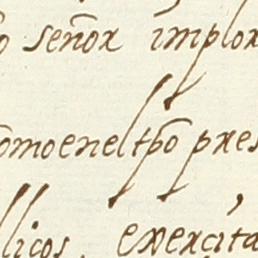 o señor implor
omo en el tpõ pres
licos, exercita